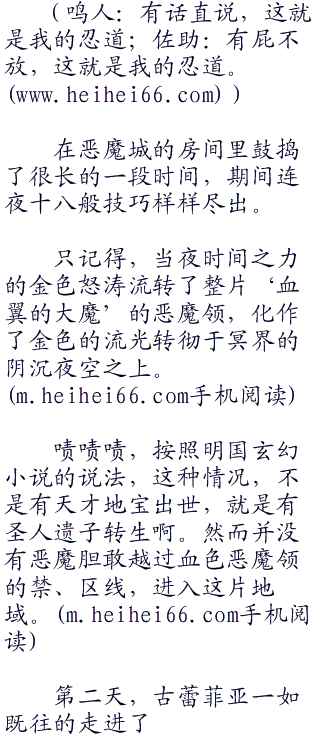 (鸣人：有话直说，这就
是我的忍道；佐助：有屁不
放，这就是我的忍道。
(www.heihei66.com) )
在恶魔城的房间里鼓捣
了很长的一段时间，期间连
夜十八般技巧样样尽出。
只记得，当夜时间之力
的金色怒涛流转了整片‘血
翼的大魔’的恶魔领，化作
了金色的流光转彻于冥界的
阴沉夜空之上。
(m.heihei66.com手机阅读)
啧啧啧，按照明国玄幻
小说的说法，这种情况，不
是有天才地宝出世，就是有
圣人遗子转生啊。然而并没
有恶魔胆敢越过血色恶魔领
的禁、区线，进入这片地
域。(m.heihei66.com手机阅
读)
第二天，古蕾菲亚一如
既往的走进了